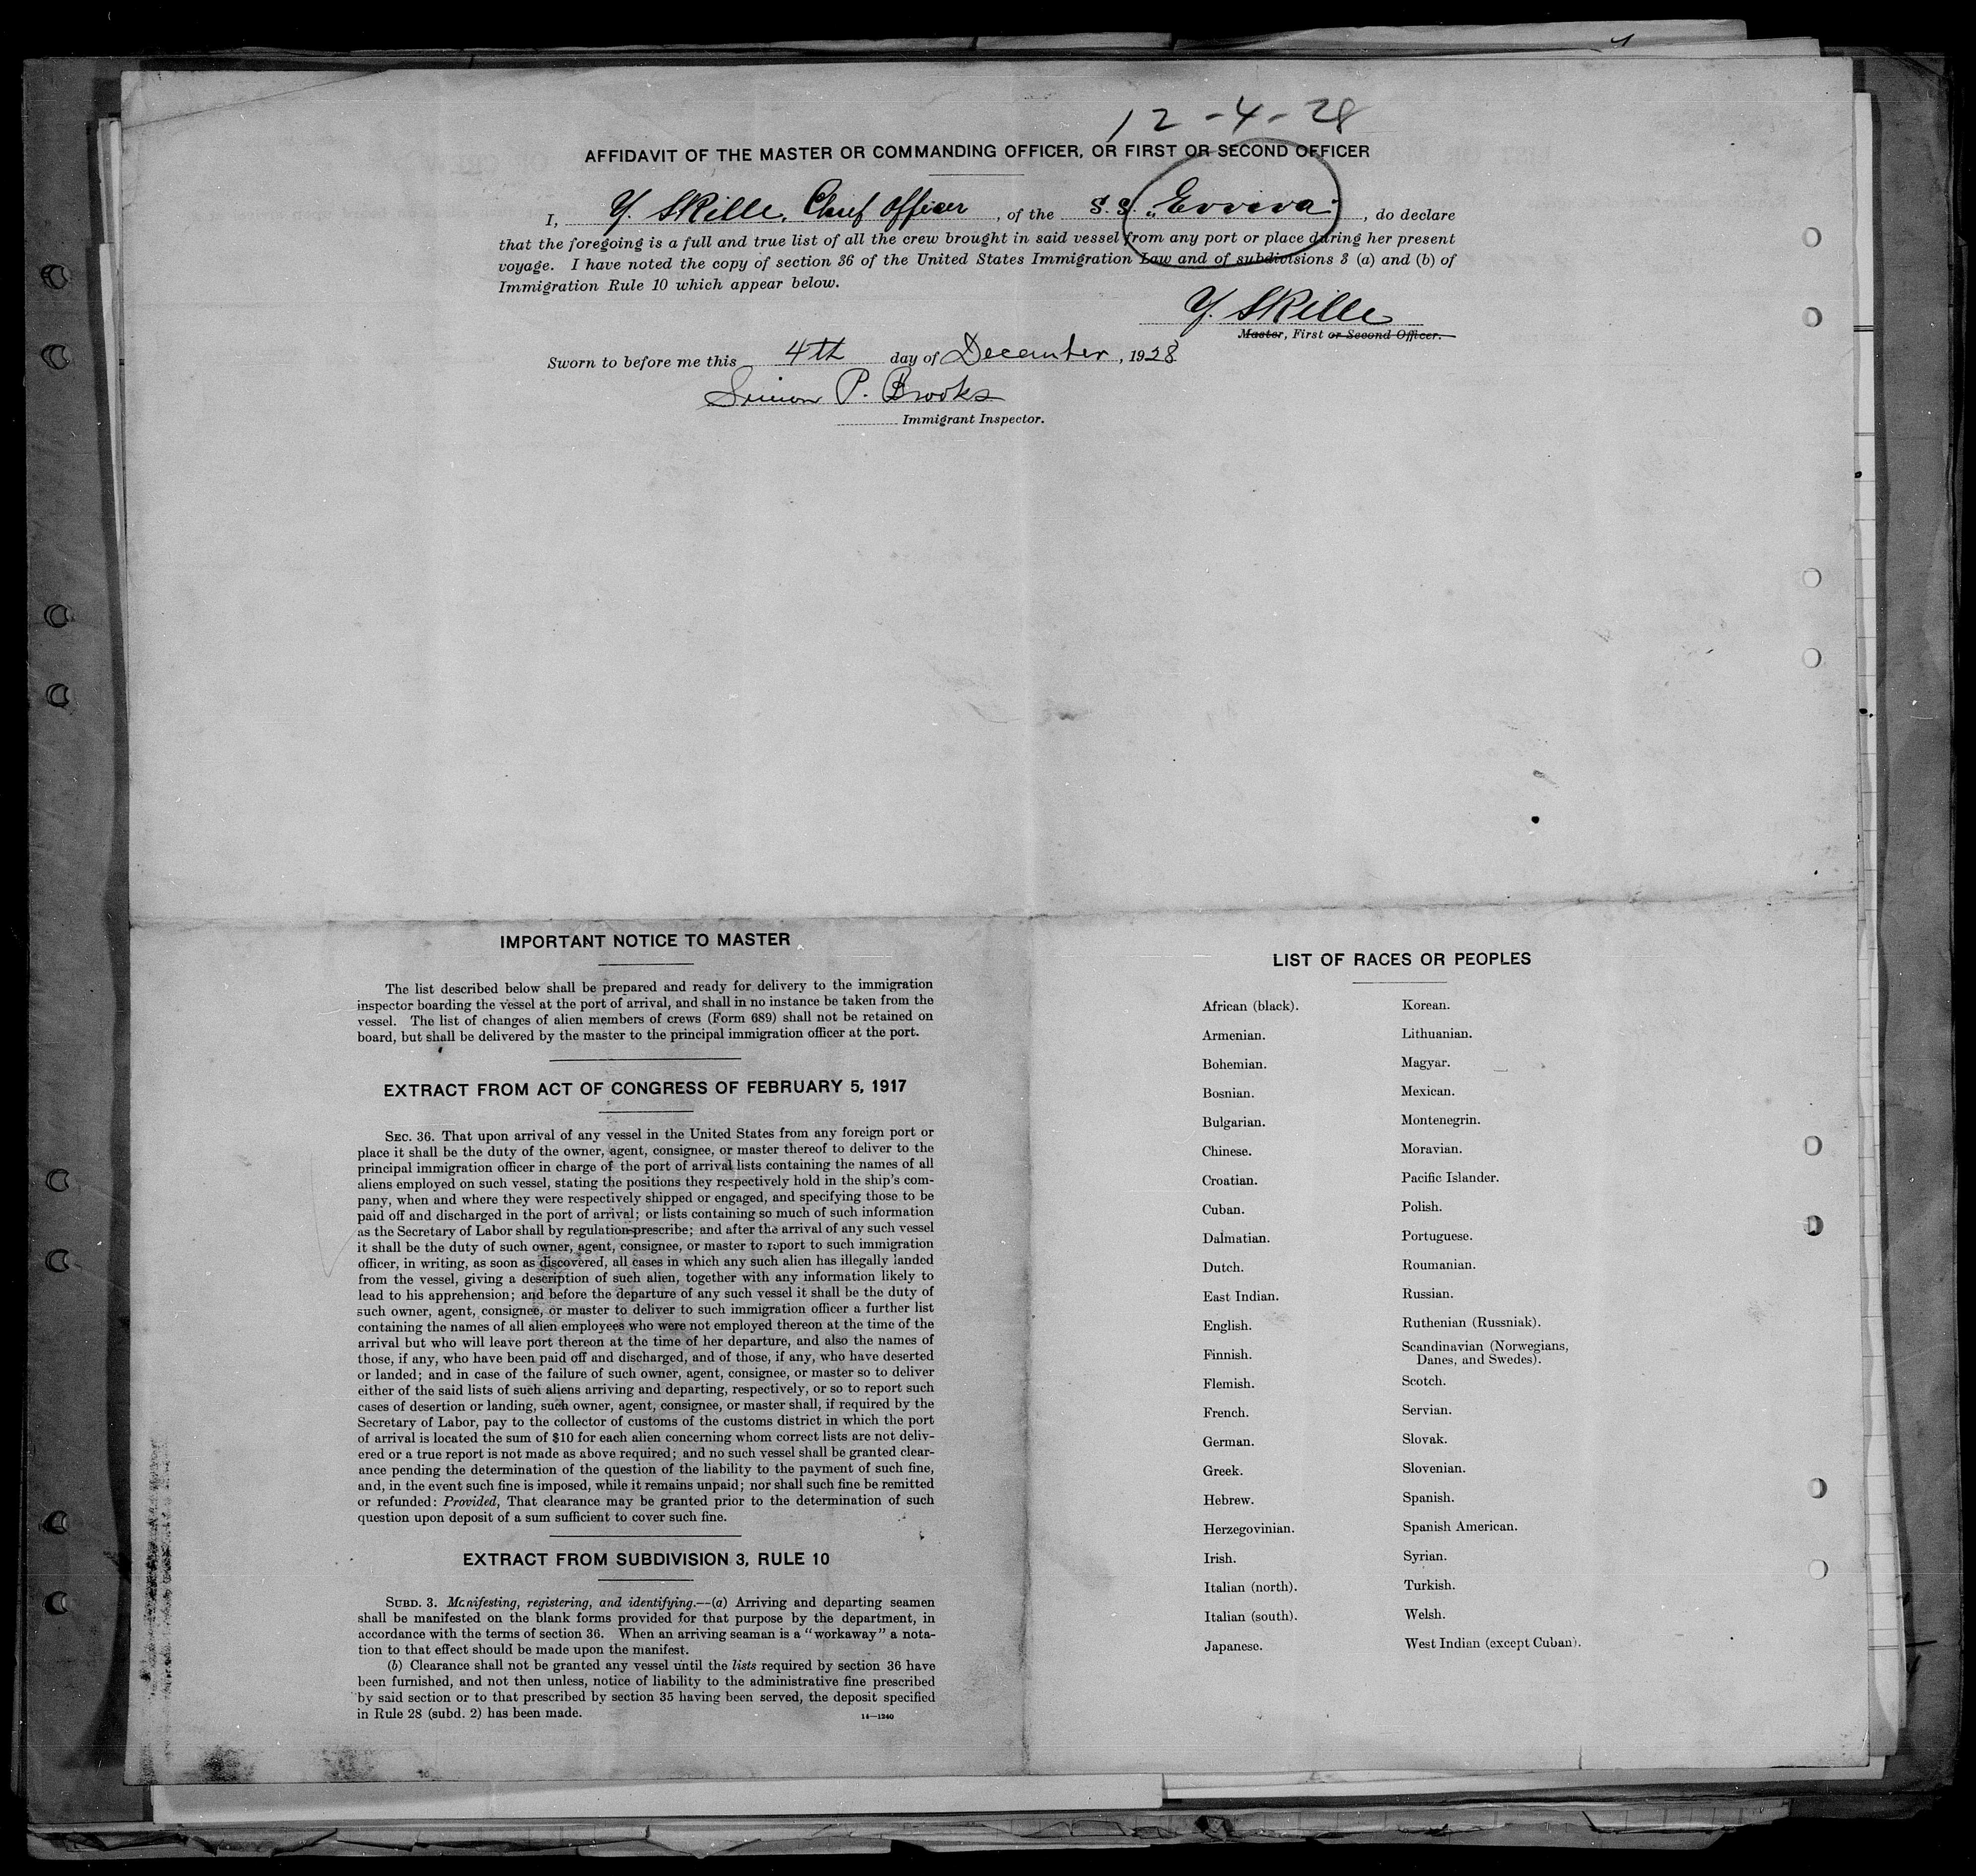 12-4-28
AFFIDAVIT OF THE MASTER OR COMMANDING OFFICER, OR FIRST OR SECOND OFFICER
I, Y. Skille, Chief Officer, of the S.S. „Evviva", do declare
that the foregoing is a full and true list of all the crew brought in said vessel from any port or place during her present
voyage. I have noted the copy of section 36 of the United States Immigration Law and of subdivisions 3 (a) and (b) of
Immigration Rule 10 which appear below.
Y. Skille
Master, First or Second Officer.
Sworn to before me this 4th day of December, 1928
Simon P. Brooks
Immigrant Inspector.
IMPORTANT NOTICE TO MASTER
The list described below shall be prepared and ready for delivery to the immigration
inspector boarding the vessel at the port of arrival, and shall in no instance be taken from the
vessel. The list of changes of alien members of crews (Form 689) shall not be retained on
board, but shall be delivered by the master to the principal immigration officer at the port.
EXTRACT FROM ACT OF CONGRESS OF FEBRUARY 5, 1917
SEC. 36. That upon arrival of any vessel in the United States from any foreign port or
place it shall be the duty of the owner, agent, consignee, or master thereof to deliver to the
principal immigration officer in charge of the port of arrival lists containing the names of all
aliens employed on such vessel, stating the positions they respectively hold in the ship's com-
pany, when and where they were respectively shipped or engaged, and specifying those to be
paid off and discharged in the port of arrival; or lists containing so much of such information
as the Secretary of Labor shall by regulation prescribe; and after the arrival of any such vessel
it shall be the duty of such owner, agent, consignee, or master to report to such immigration
officer, in writing, as soon as discovered, all cases in which any such alien has illegally landed
from the vessel, giving a description of such alien, together with any information likely to
lead to his apprehension; and before the departure of any such vessel it shall be the duty of
such owner, agent, consignee, or master to deliver to such immigration officer a further list
containing the names of all alien employees who were not employed thereon at the time of the
arrival but who will leave port thereon at the time of her departure, and also the names of
those, if any, who have been paid off and discharged, and of those, if any, who have deserted
or landed; and in case of the failure of such owner, agent, consignee, or master so to deliver
either of the said lists of such aliens arriving and departing, respectively, or so to report such
cases of desertion or landing, such owner, agent, consignee, or master shall, if required by the
Secretary of Labor, pay to the collector of customs of the customs district in which the port
of arrival is located the sum of $10 for each alien concerning whom correct lists are not deliv-
ered or a true report is not made as above required; and no such vessel shall be granted clear-
ance pending the determination of the question of the liability to the payment of such fine,
and, in the event such fine is imposed, while it remains unpaid; nor shall such fine be remitted
or refunded: Provided, That clearance may be granted prior to the determination of such
question upon deposit of a sum sufficient to cover such fine.
EXTRACT FROM SUBDIVISION 3, RULE 10
SUBD. 3. Manifesting, registering, and identifying.—(a) Arriving and departing seamen
shall be manifested on the blank forms provided for that purpose by the department, in
accordance with the terms of section 36. When an arriving seaman is a "workaway" a nota-
tion to that effect should be made upon the manifest.
(b) Clearance shall not be granted any vessel until the lists required by section 36 have
been furnished, and not then unless, notice of liability to the administrative fine prescribed
by said section or to that prescribed by section 35 having been served, the deposit specified
in Rule 28 (subd. 2) has been made.
14—1240
LIST OF RACES OR PEOPLES
African (black).
Armenian.
Bohemian.
Bosnian.
Bulgarian.
Chinese.
Croatian.
Cuban.
Dalmatian.
Dutch.
East Indian.
English.
Finnish.
Flemish.
French.
German.
Greek.
Hebrew.
Herzegovinian.
Irish.
Italian (north).
Italian (south).
Japanese.
Korean.
Lithuanian.
Magyar.
Mexican.
Montenegrin.
Moravian.
Pacific Islander.
Polish.
Portuguese.
Roumanian.
Russian.
Ruthenian (Russniak).
Scandinavian (Norwegians,
Danes, and Swedes).
Scotch.
Servian.
Slovak.
Slovenian.
Spanish.
Spanish American.
Syrian.
Turkish.
Welsh.
West Indian (except Cuban).